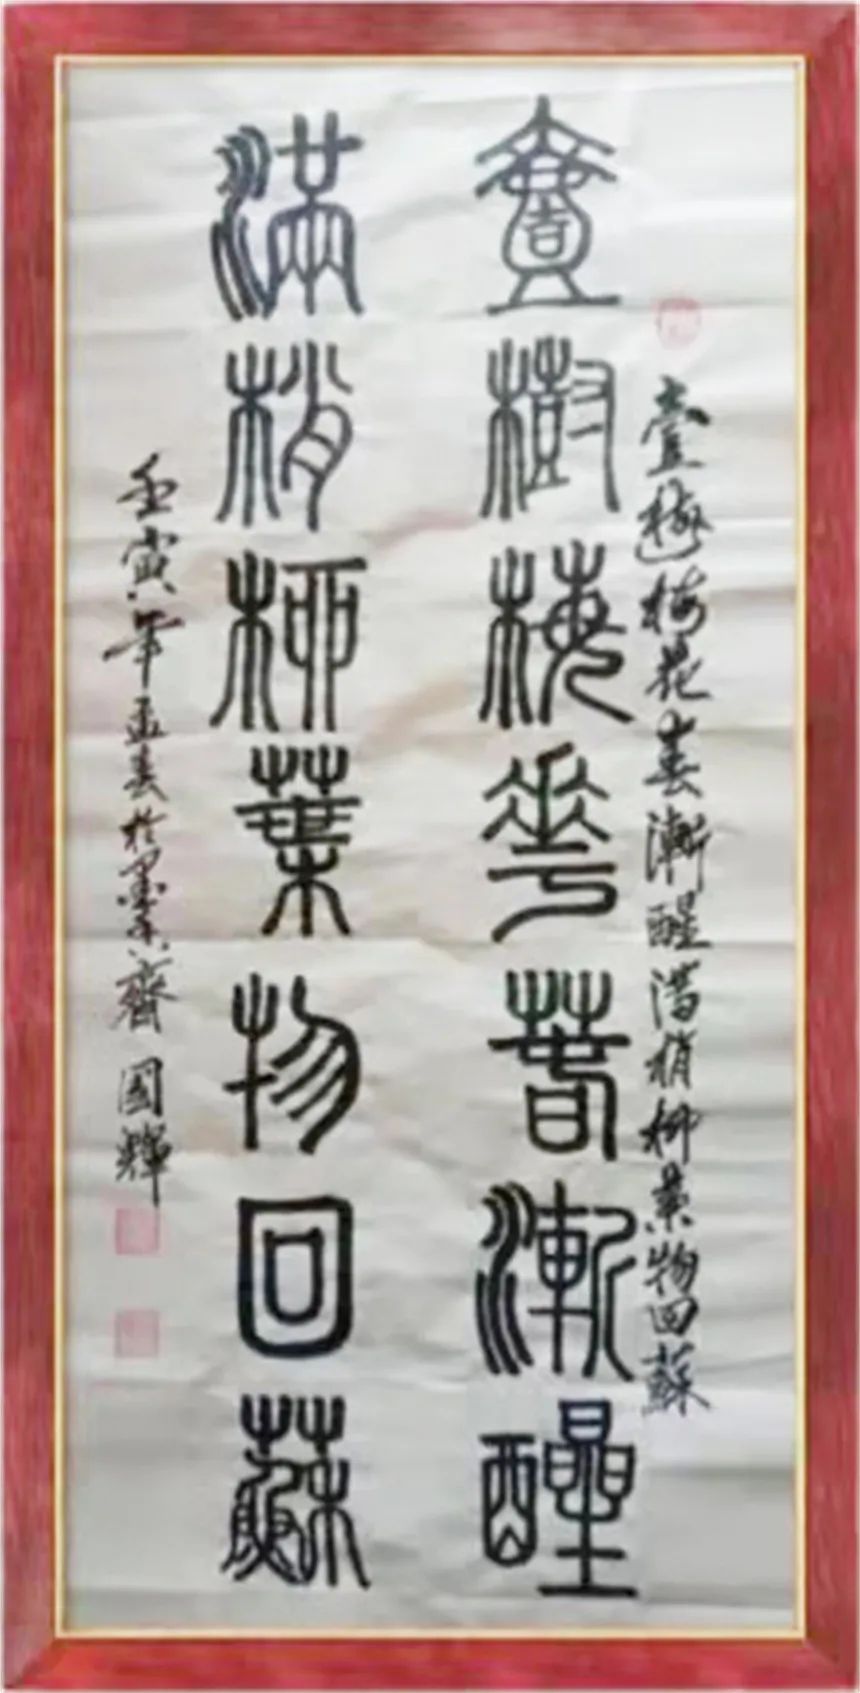 壹樹梅花春漸醒
滿梢柳葉物回蘇
壹樹梅花春漸醒滿梢柳葉物回蘇
壬寅年孟春於墨香齋國輝